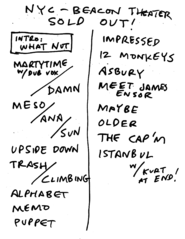 NYC - BEACON THEATER
SOLD OUT!
INTRO:
WHAT NOT
MARTYTIME
W/DUB VOX
/DAMN
MESO/
ANA/
SUN
UPSIDE DOWN
TRASH/
CLIMBING
ALPHABET
MEMO
PUPPET
IMPRESSED
12 MONKEYS
ASBURY
MEET JAMES
ENSOR
MAYBE
OLDER
THE CAP'M
ISTANBUL
W/ KURT
AT END!